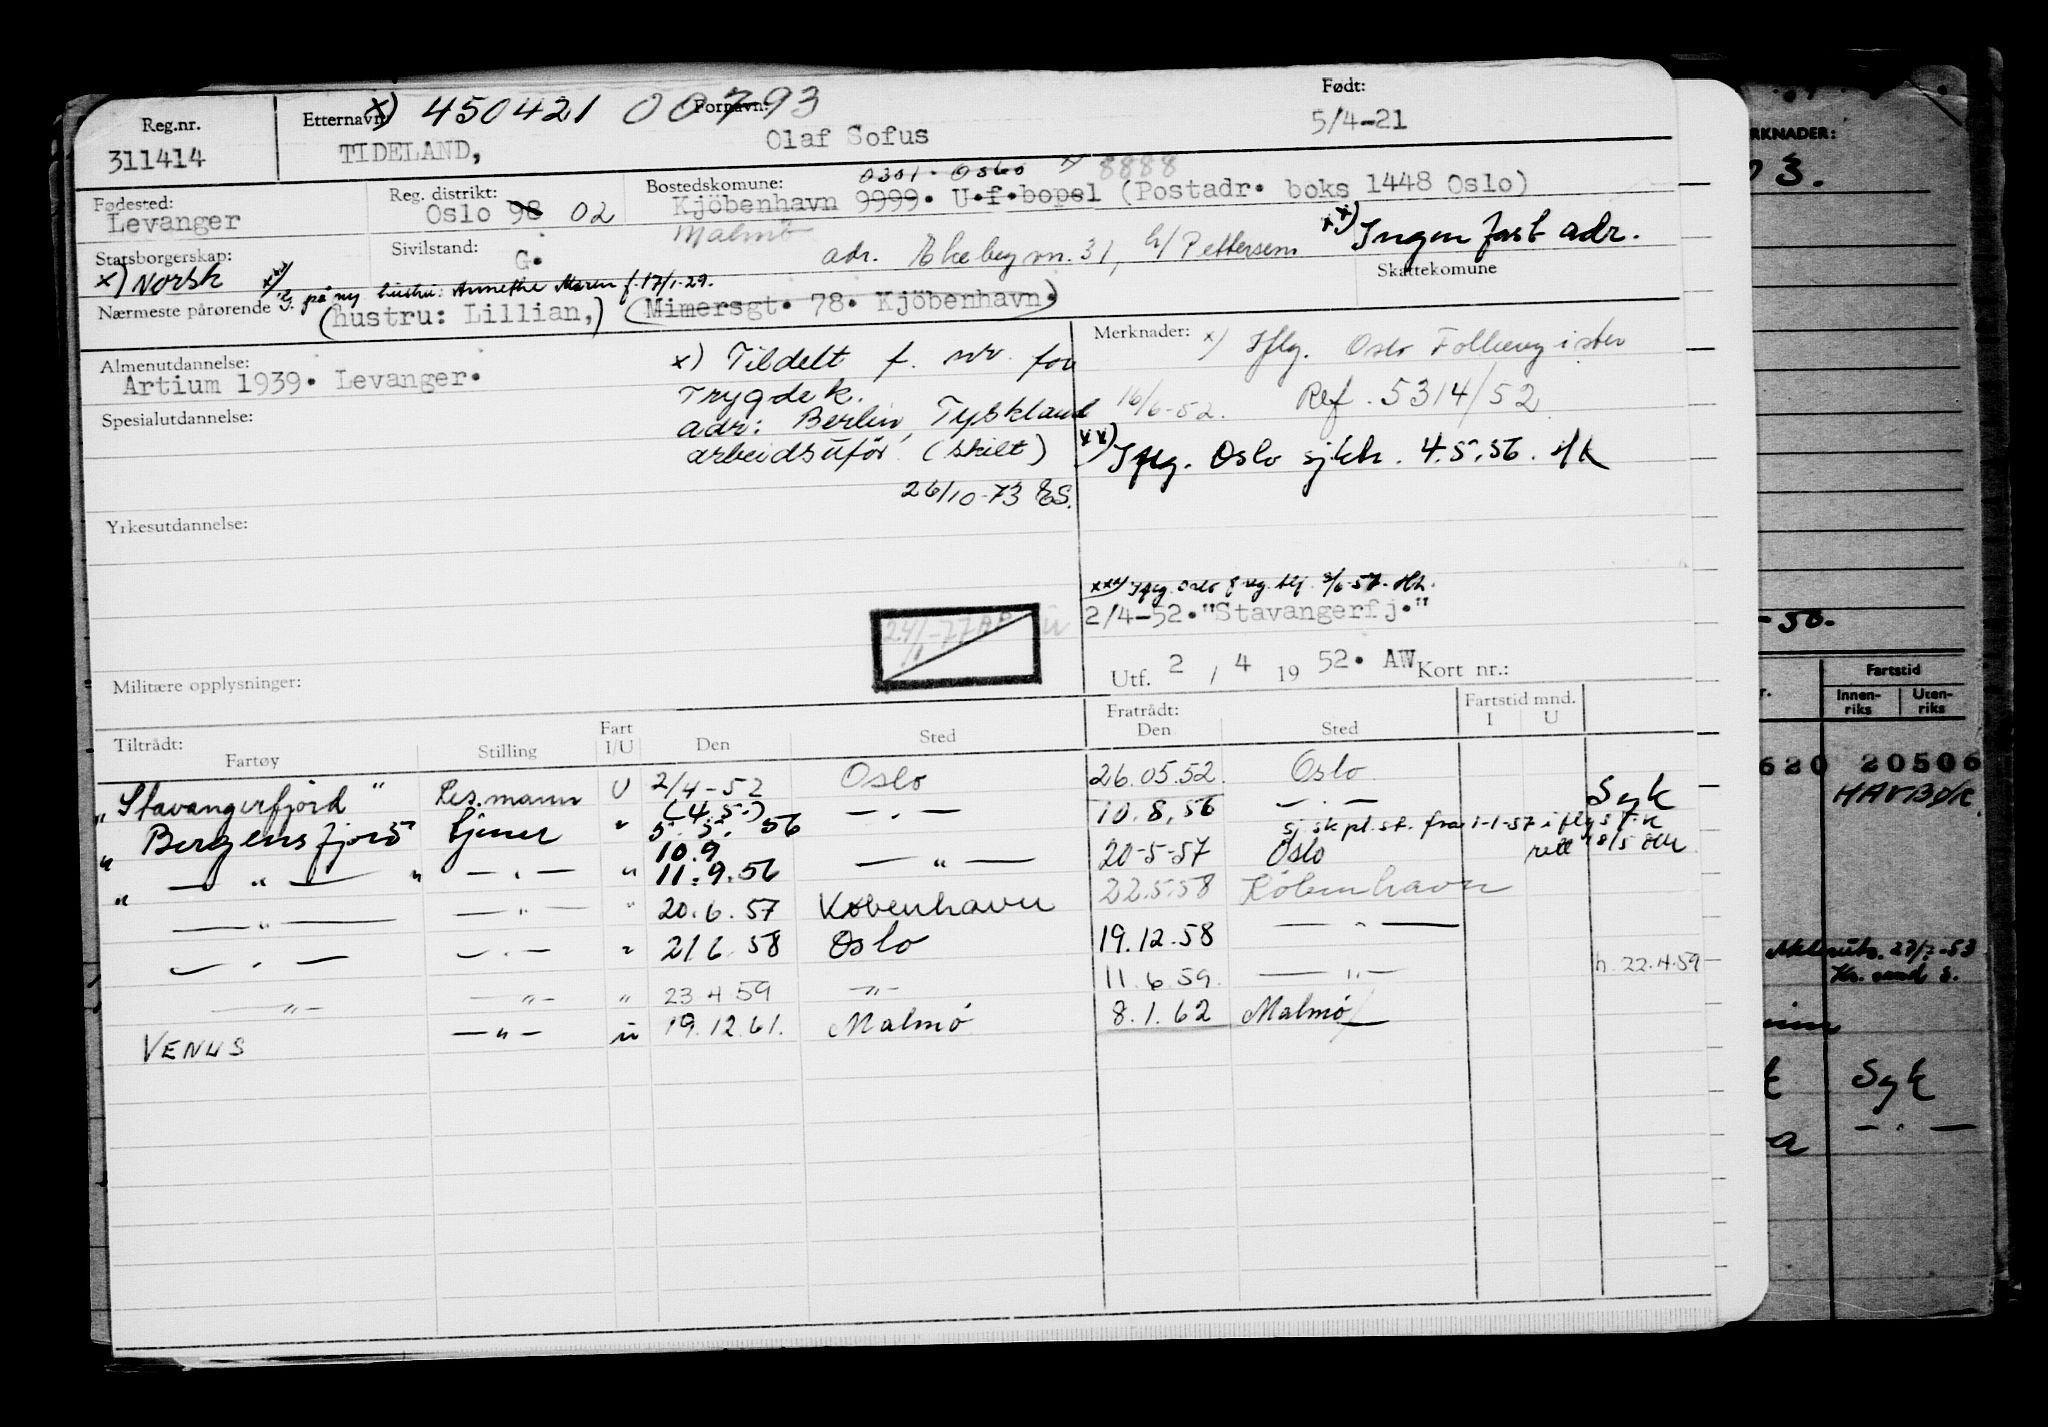 Reg.nr. Etternavn: x) 450421 00793 Fornavn: Født:
311414 TIDELAND, Olaf Sofus 5/4-21
0301. Oslo x) 8888
Fødested: Reg. distrikt: Bostedskomune:
Levanger Oslo 98 02 Kjöbenhavn 9999. U.f.bopel (Postadr. boks 1448 Oslo)
Malmö
Statsborgerskap: Sivilstand: adr. 31, h/ Pettersen xx) Ingen fast adr.
x) Norsk G. Skattekomune
xxx) G. på ny hustru: Annethe Maren f. 17/1-29.
Nærmeste pårørende (hustru: Lillian,) (Mimersgt. 78. Kjöbenhavn.)
Almenutdannelse: x) Tildelt f. nr. for Merknader: x) Iflg. Oslo Folkeregister
Artium 1939. Levanger. Trygdek. 16/6-52. Ref. 5314/52
Spesialutdannelse: adr: Berlin, Tyskland
arbeidsufør (skilt) xx) Iflg. Oslo sjktr. 4.5.56.
26/10-73 ES.
Yrkesutdannelse:
xxx) Iflg. Oslo f.reg.
2/4-52."Stavangerfj."
24/1-77
Utf. 2 / 4 19 52. AW Kort nr.:
Militære opplysninger:
Tiltrådt: Fart Fratrådt: Fartstid mnd.
Fartøy Stilling I/U Den Sted Den Sted I U
"Stavangerfjord" Res.mann U 2/4-52 Oslo 26.05.52. Oslo
"Bergensfjord Tjener " (4.5.) 5.5. 56 — . — 10.8.56 — . — Syk
sj sk pl. st. fra 1-1-57 iflg
" — " — " — . — " 10.9 11.9.56 — " — 20-5-57 Oslo
— " — — " — " 20.6.57 København 22.5.58 København
— . — — . — " 21.6.58 Oslo 19.12.58 — " —
— " — — " — " 23 4 59 — " — 11.6.59. — " — h. 22.4.59
VENUS — " — " 19.12.61. Malmö 8.1.62 Malmö
RKNADER:
03.
-50.
Fartstid
Innen-riks Uten-riks
620 20506
HAVBØK
Syk
— . —